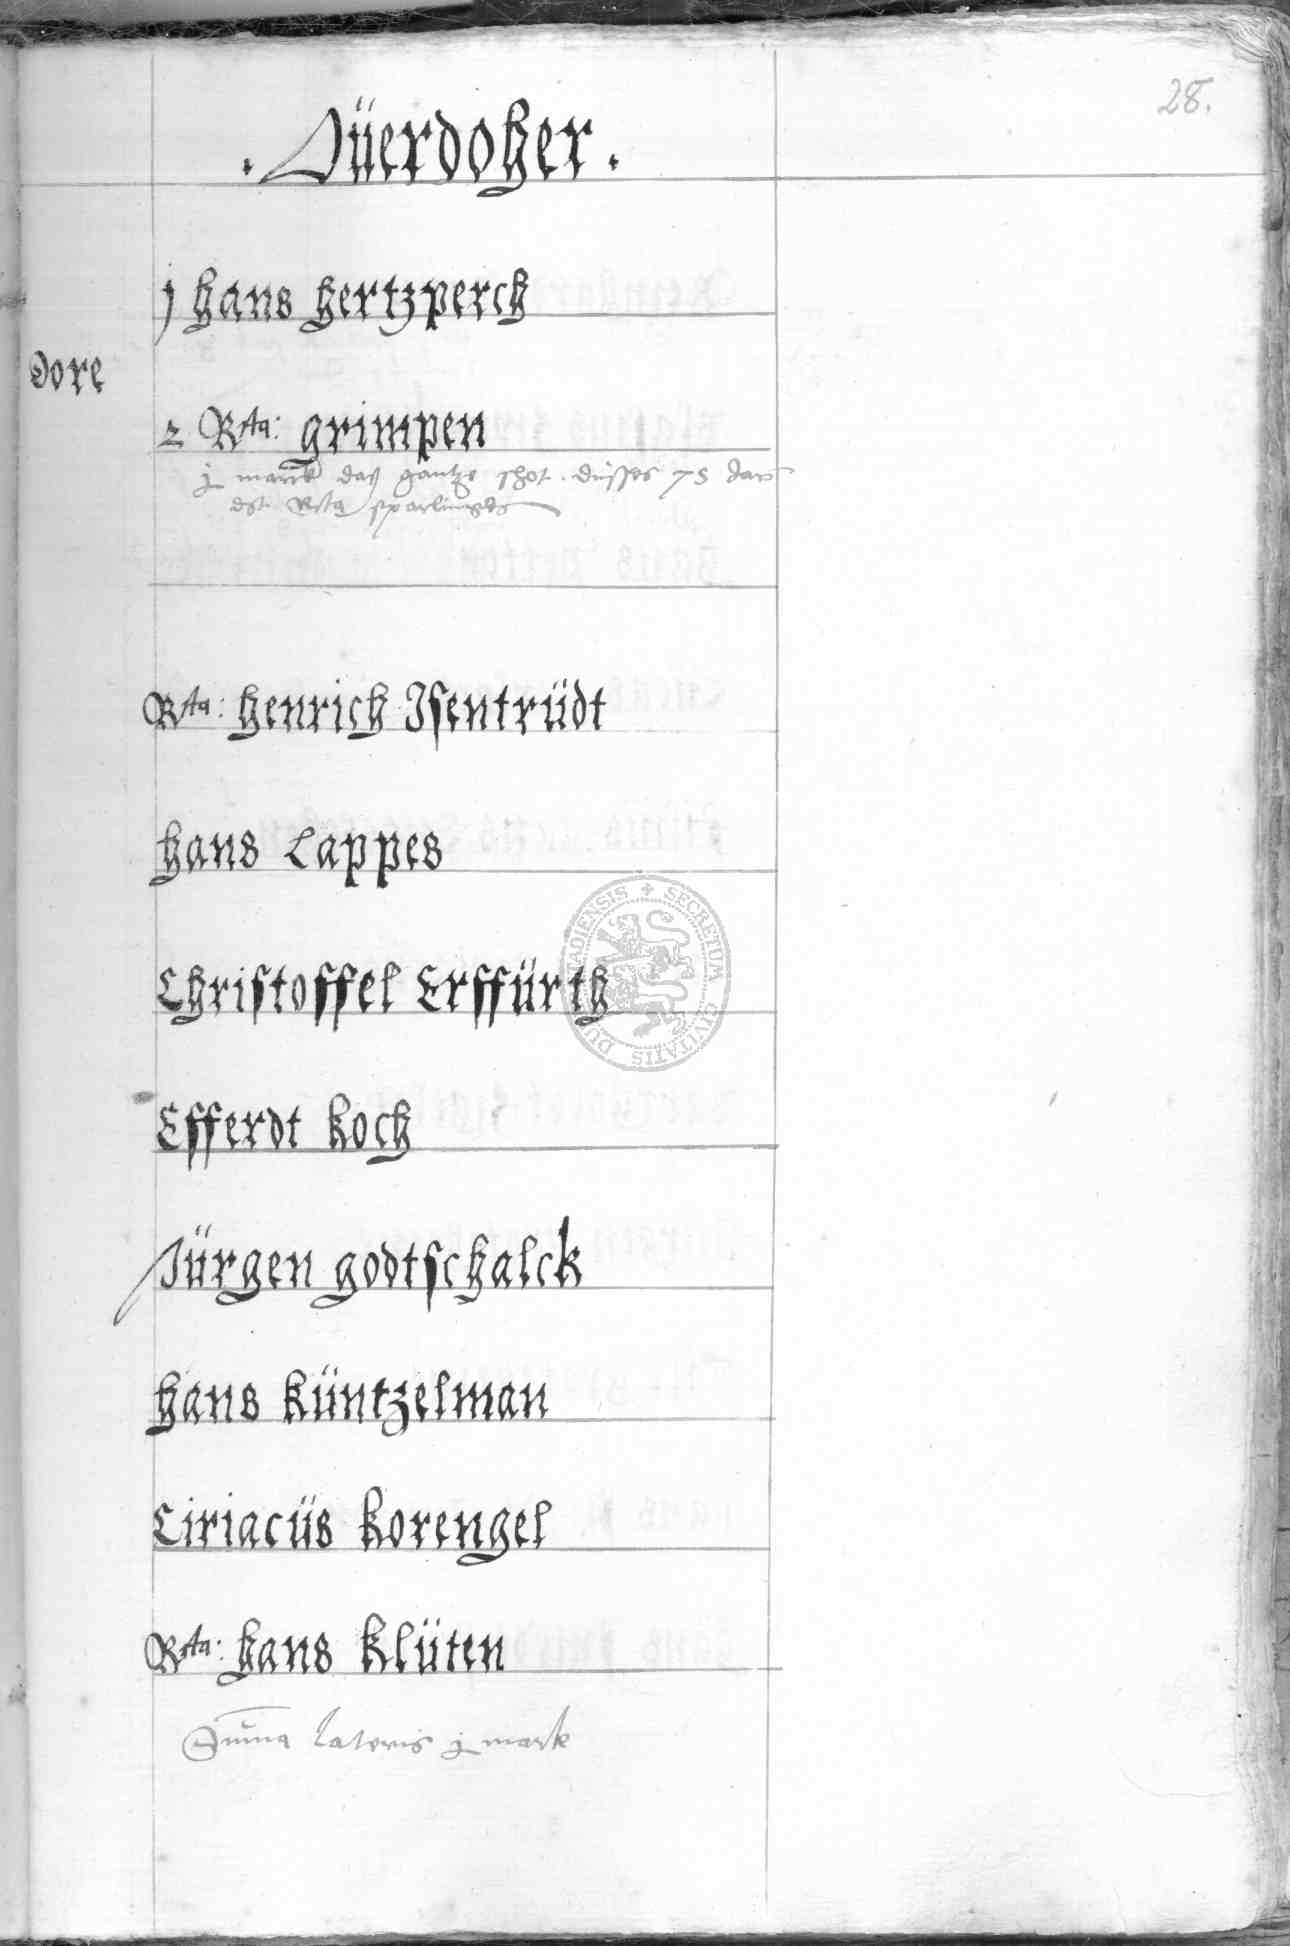 28.
. Düerdoher .
j hans hertzperch
Dore
2 Rta: grimpen
j marck daß gantze schot. düsses 75 Jars
dt. Rta sparlinges
Rta: henrich Isentrüdt
hans Lappes
Christoffel Erffürth
Efferdt koch
Jürgen godtschalck
hans küntzelman
Ciriacüs korengel
Rta: hans klüten
Suma lateris j mark
SECRETUM CIVITATIS DU ADIENSIS